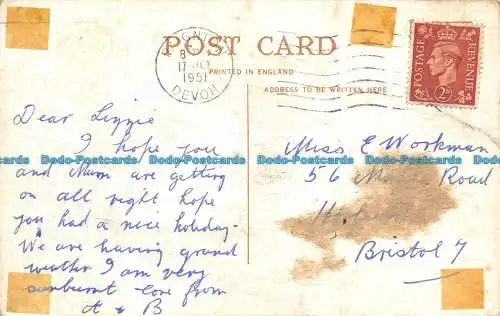 POST CARD
PRINTED IN ENGLAND
ADDRESS TO BE WRITTEN HERE
17 JLY
1951
DEVON
POSTAGE
REVENUE
2D
Dear Lizzie
I hope you
and Mum are getting
on all right hope
you had a nice holiday.
We are having grand
weather I am very
sunburnt love from
A & B
Miss E Workman
56 Road
Bristol 7
Dodo-Postcards Dodo-Postcards Dodo-Postcards Dodo-Postcards
Dodo-Postcards Dodo-Postcards Dodo-Postcards